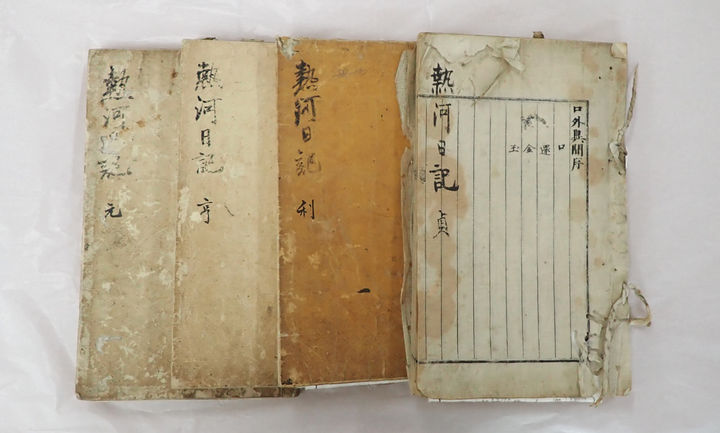 熱河日記 元
熱河日記 亨
熱河日記 利
熱河日記 貞
口外異聞序
口
還
金
玉